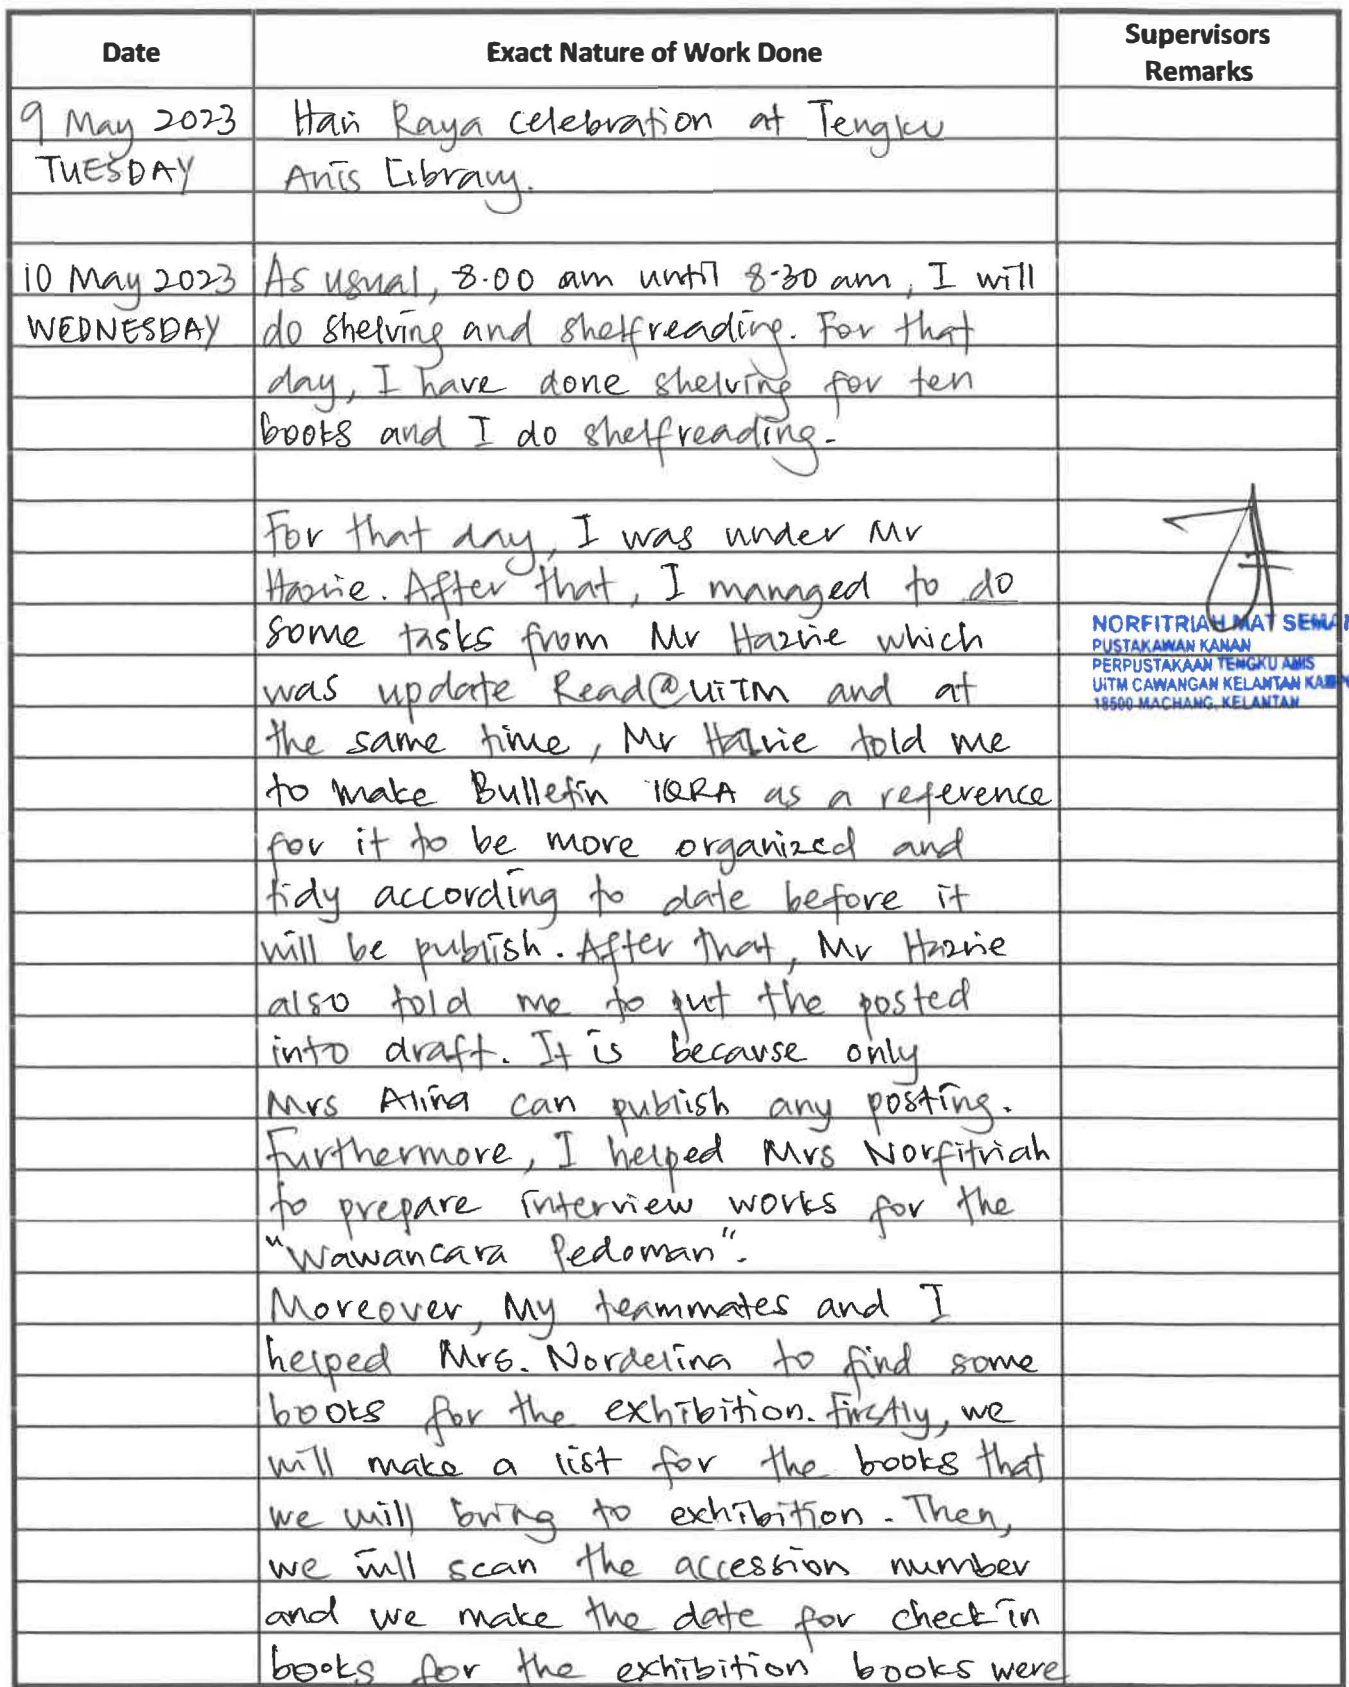 Date
Exact Nature of Work Done
Supervisors
Remarks
9 May 2023
TUESDAY
Hari Raya celebration at Tengku
Anis Library.
10 May 2023
WEDNESDAY
As usual, 8.00 am until 8.30 am, I will
do shelving and shelfreading. For that
day, I have done shelving for ten
books and I do shelfreading.
For that day, I was under Mr
Hazrie. After that, I managed to do
some tasks from Mr Hazrie which
was update Read@UiTM and at
the same time, Mr Hazrie told me
to make Bulletin IQRA as a reference
for it to be more organized and
tidy according to date before it
will be publish. After that, Mr Hazrie
also told me to put the posted
into draft. It is because only
Mrs Alina can publish any posting.
Furthermore, I helped Mrs Norfitriah
to prepare interview works for the
"Wawancara Pedoman".
Moreover, My teammates and I
helped Mrs. Nordelina to find some
books for the exhibition. Firstly, we
will make a list for the books that
we will bring to exhibition. Then,
we will scan the accession number
and we make the date for check in
books for the exhibition books were
NORFITRIAH MAT SEMAN
PUSTAKAWAN KANAN
PERPUSTAKAAN TENGKU ANIS
UiTM CAWANGAN KELANTAN
18500 MACHANG, KELANTAN